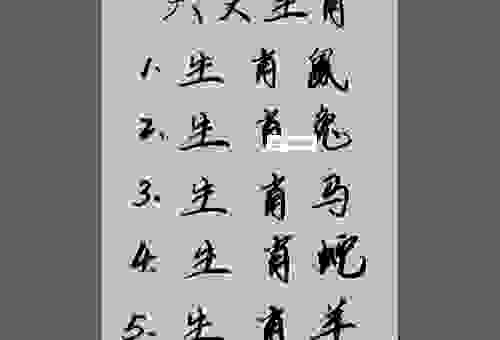 六大生肖
1、生肖鼠
2、生肖兔
3、生肖马
4、生肖蛇
5、生肖羊